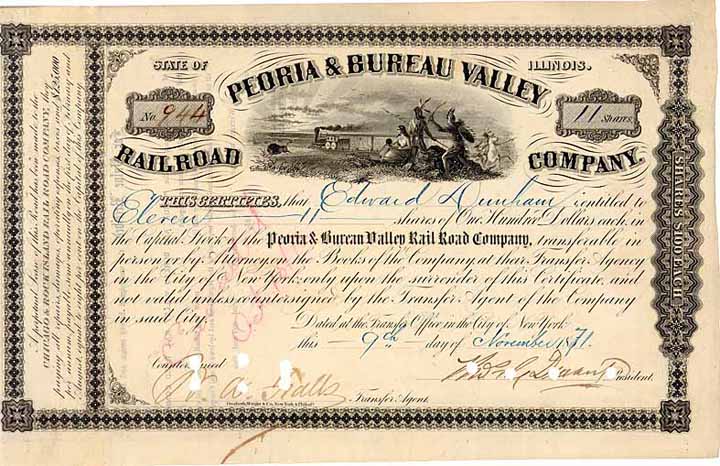 STATE OF
ILLINOIS.
PEORIA & BUREAU VALLEY
No. 944
11 Shares
RAILROAD
COMPANY.
THIS CERTIFIES, that Edward Dunham is entitled to
Eleven 11 shares of One Hundred Dollars each, in
the Capital Stock of the Peoria & Bureau Valley Rail Road Company, transferable in
person or by Attorney, on the Books of the Company, at their Transfer Agency
in the City of New York only upon the surrender of this Certificate, and
not valid unless countersigned by the Transfer Agent of the Company
in said City.
Dated at the Transfer Office in the City of New York
this 9th day of November 1871.
Countersigned
President.
Transfer Agent.
A perpetual Lease of this Road has been made to the
CHICAGO & ROCK ISLAND RAIL ROAD COMPANY, that
SHARES $100 EACH